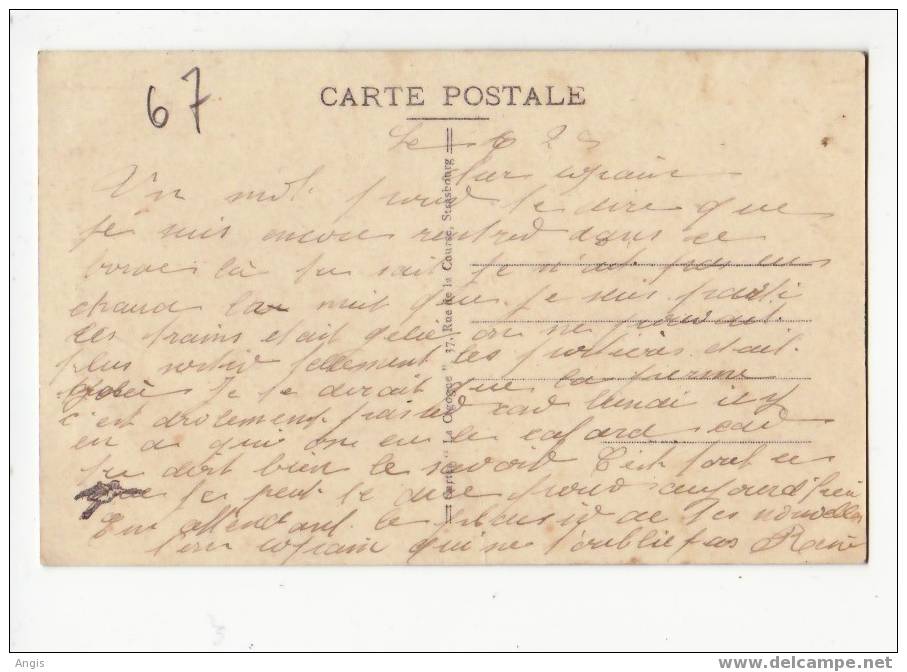 67
CARTE POSTALE
Le 6 2
Cher copain
Un mot pour te dire que
je suis encore rentred dans ce
la tu sait je n'ait pas eu
chaud la nuit que je suis parti
les trains etait gelée on ne pouvait
plus sortid tellement les portieres etait
gelée Je te dirait que la perme
c'est drolement passed cad lundi il y
en a qui on eu le cafard cad
tu doit bien le savoid C'est tout ce
que je peut te dire pour aujourd'hui
En attendant le plaisid de tes nouvelles
Ton copain qui ne t'oublie pas René
Cartes "La Cigogne" 37, Rue de la Course, Strasbourg
Angis
www.delcampe.net